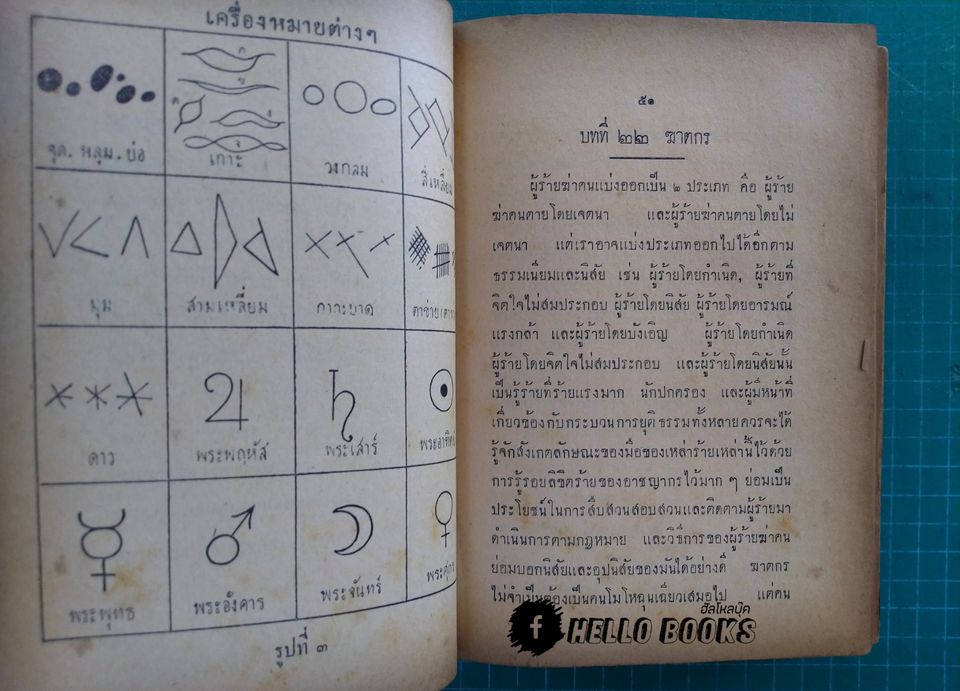 เครื่องหมายต่างๆ
จุด. หลุม. ย่อ
เกาะ
วงกลม
สี่เหลี่ยม
มุม
สามเหลี่ยม
กากะบาด
ตาข่าย
ดาว
พระพฤหัส
พระเสาร์
พระอาทิตย์
พระพุทธ
พระอังคาร
พระจันทร์
พระศุกร์
รูปที่ ๓
๕๑
บทที่ ๒๒ ฆาตกร
ผู้ร้ายฆ่าคนแบ่งออกเป็น ๒ ประเภท คือ ผู้ร้าย
ฆ่าคนตายโดยเจตนา และผู้ร้ายฆ่าคนตายโดยไม่
เจตนา แต่เราอาจแบ่งประเภทออกไปได้อีกตาม
ธรรมเนียมและนิสัย เช่น ผู้ร้ายโดยกำเนิด, ผู้ร้ายที่
จิตใจไม่สมประกอบ ผู้ร้ายโดยนิสัย ผู้ร้ายโดยอารมณ์
แรงกล้า และผู้ร้ายโดยบังเอิญ ผู้ร้ายโดยกำเนิด
ผู้ร้ายโดยจิตใจไม่สมประกอบ และผู้ร้ายโดยนิสัยนั้น
เป็นรู้ร้ายที่ร้ายแรงมาก นักปกครอง และผู้มีหน้าที่
เกี่ยวข้องกับกระบวนการยุติธรรมทั้งหลายควรจะได้
รู้จักสังเกตลักษณะของมือของเหล่าร้ายเหล่านี้ไว้ด้วย
การรู้รอยลิขิตร้ายของอาชญากรไว้มาก ๆ ย่อมเป็น
ประโยชน์ในการสืบสวนสอบสวนและติดตามผู้ร้ายมา
ดำเนินการตามกฎหมาย และวิธีการของผู้ร้ายฆ่าคน
ย่อมบอกนิสัยและอุปนิสัยของมันได้อย่างดี ฆาตกร
ไม่จำเป็นต้องเป็นคนโมโหฉุนเฉียวเสมอไป แต่คน
ฮัลโหลบุ๊ค
f HELLO BOOKS